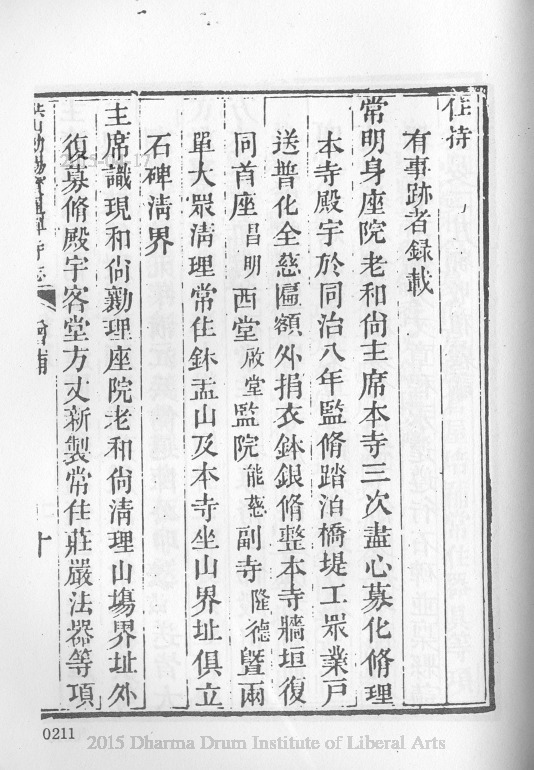 住持
有事跡者錄載
常明身座院老和尙主席本寺三次盡心募化脩理
本寺殿宇於同治八年監脩踏泊橋堤工眾業戶
送普化全慈匾額外捐衣鉢銀脩整本寺牆垣復
同首座昌明西堂啟堂監院能慈副寺隆德曁兩
單大眾淸理常住鉢盂山及本寺坐山界址俱立
石碑淸界
主席識現和尙勷理座院老和尙淸理山塲界址外
復募脩殿宇客堂方丈新製常住莊嚴法器等項
洪山 寶通禪寺志 增補 十
0211
2015 Dharma Drum Institute of Liberal Arts